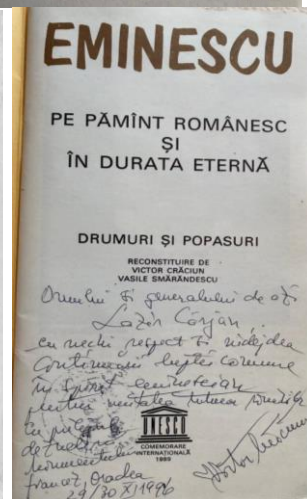 EMINESCU
PE PĂMÎNT ROMÂNESC
ȘI
ÎN DURATA ETERNĂ
DRUMURI ȘI POPASURI
RECONSTITUIRE DE
VICTOR CRĂCIUN
VASILE SMĂRĂNDESCU
Omului și generalului de azi
Lazăr Cârjan
cu vechi respect și nădejdea
continuării luptei comune
în spirit eminescian
pentru unitatea tuturor românilor
de
monumentului
francez, Oradea
29/30 XI 1996
Victor Crăciun
UNESCO
COMEMORARE
INTERNAȚIONALĂ
1989